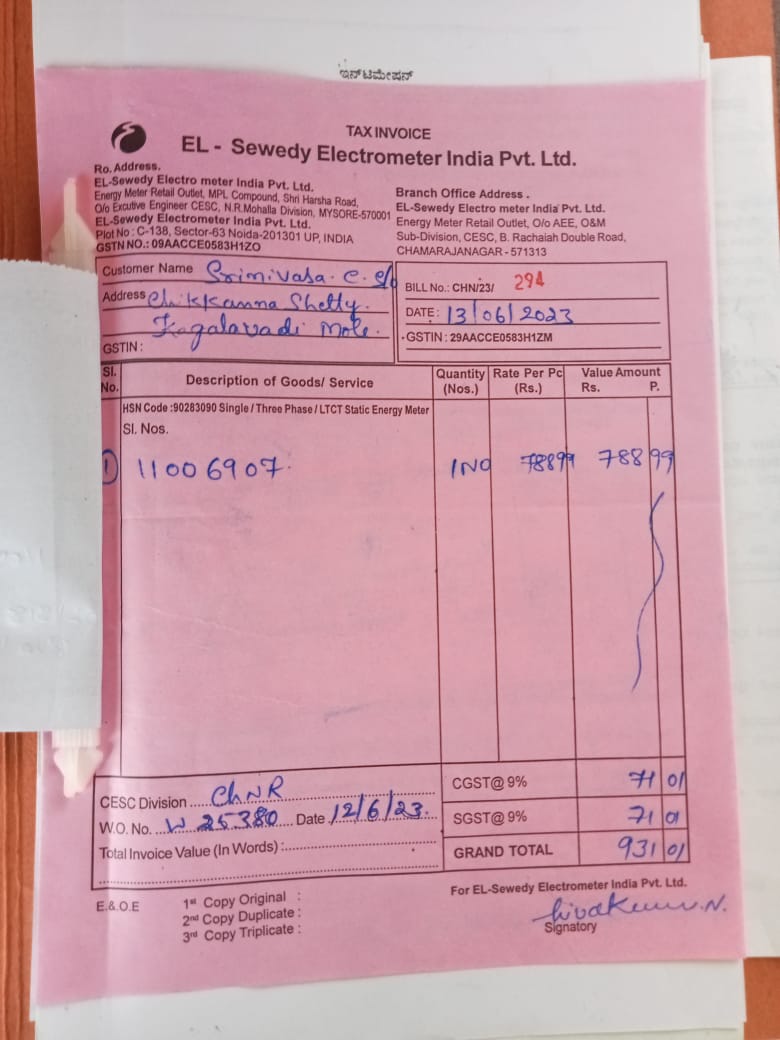 ಇನ್‌ಟಿಮೇಷನ್
TAX INVOICE
EL - Sewedy Electrometer India Pvt. Ltd.
Ro. Address.
EL-Sewedy Electro meter India Pvt. Ltd.
Energy Meter Retail Outlet, MPL Compound, Shri Harsha Road,
O/o Excutive Engineer CESC, N.R.Mohalla Division, MYSORE-570001
EL-Sewedy Electrometer India Pvt. Ltd.
Plot No : C-138, Sector-63 Noida-201301 UP, INDIA
GSTN NO.: 09AACCE0583H1ZO
Branch Office Address .
EL-Sewedy Electro meter India Pvt. Ltd.
Energy Meter Retail Outlet, O/o AEE, O&M
Sub-Division, CESC, B. Rachaiah Double Road,
CHAMARAJANAGAR - 571313
Customer Name Srinivasa. C. S/o
Address Chikkanna Shetty.
Kagalavadi Mole.
GSTIN :
BILL No.: CHN/23/ 294
DATE : 13/06/2023
GSTIN : 29AACCE0583H1ZM
Sl. No. Description of Goods/ Service Quantity (Nos.) Rate Per Pc (Rs.) Value Amount Rs. P.
HSN Code :90283090 Single / Three Phase / LTCT Static Energy Meter
Sl. Nos.
1 11006907. 1NO 78899 788 99
CESC Division ChNR
W.O. No. W 25380 Date 12/6/23.
Total Invoice Value (In Words) :
CGST@ 9% 71 01
SGST@ 9% 71 01
GRAND TOTAL 931 01
E.& O.E
1st Copy Original :
2nd Copy Duplicate :
3rd Copy Triplicate :
For EL-Sewedy Electrometer India Pvt. Ltd.
Signatory